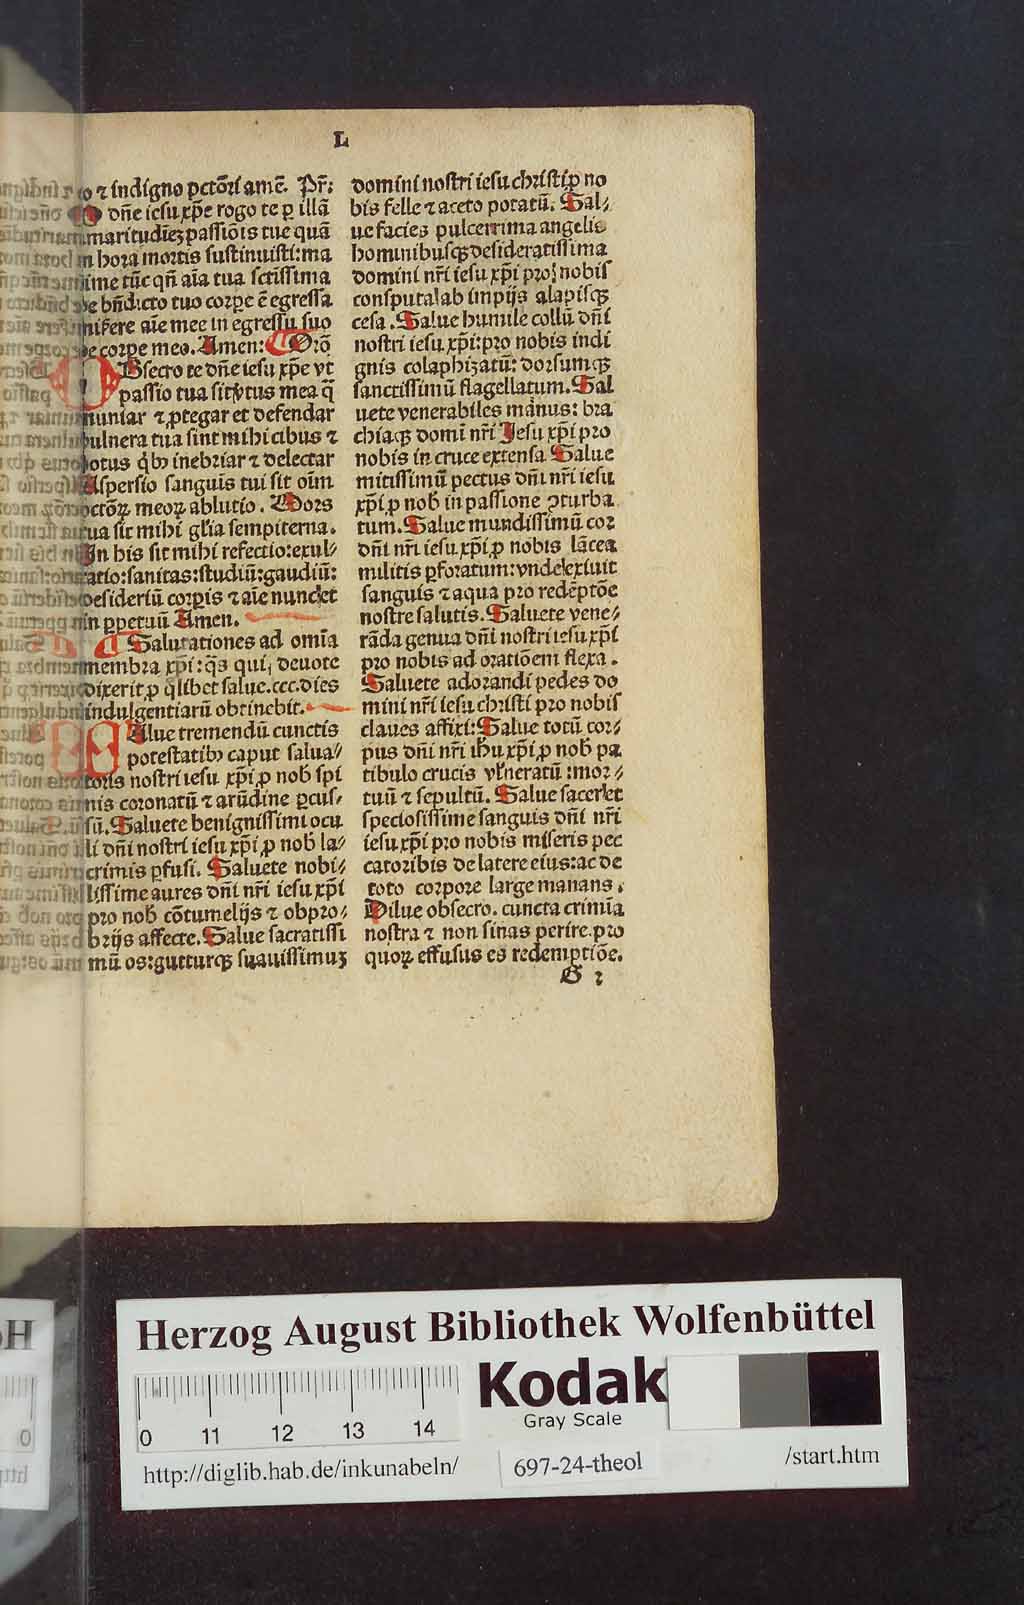 L
o ⁊ indigno pctōri amē. Pr̄;
O dn̄e iesu xp̄e rogo te ꝑ illā
maritudiēꝫ passiōis tue quā
in hora mortis sustinuisti: ma
xime tūc qn̄ aīa tua sctīssima
de bn̄dicto tuo corꝑe ē egressa
miserere aīe mee in egressu suo
de corꝑe meo. Amen: Orō
OBsecro te dn̄e iesu xp̄e vt
passio tua sit v̓tus mea q̄
muniar ⁊ ꝓtegar et defendar
vulnera tua sint mihi cibus ⁊
potus qͥbꝰ inebriar ⁊ delectar
Aspersio sanguis tui sit oīm
pctōꝝ meoꝝ ablutio. Mors
tua sit mihi gl̄ia sempiterna.
In his sit mihi refectio: exul⸗
tatio: sanitas: studiū: gaudiū:
desideriū corꝑis ⁊ aīe nunc et
in ꝑpetuū Amen.
Salutationes ad omīa
membra xp̄i: qͣs qui deuote
dixerit ꝓ qͣlibet salue. ccc. dies
indulgentiarū obtinebit.
SAlue tremendū cunctis
potestatibꝰ caput salua⸗
toris nostri iesu xp̄i ꝓ nob̄ spi
nis coronatū ⁊ arūdine ꝑcus⸗
sū. Saluete benignissimi ocu
li dn̄i nostri iesu xp̄i ꝓ nob̄ la⸗
crimis ꝑfusi. Saluete nobi⸗
lissime aures dn̄i nr̄i iesu xp̄i
pro nob̄ cōtumelijs ⁊ obpro⸗
brijs affecte. Salue sacratissi
mū os: gutturqꝫ suauissimuꝫ
domini nostri iesu christi ꝓ no
bis felle ⁊ aceto potatū. Sal⸗
ue facies pulcerrima angelis
hominibusqꝫ desideratissima
domini nr̄i iesu xp̄i pro nobis
consputa ab impijs alapisqꝫ
cesa. Salue humile collū dn̄i
nostri iesu xp̄i: pro nobis indi
gnis colaphizatū: dorsumqꝫ
sanctissimū flagellatum. Sal
uete venerabiles manus: bra
chiaqꝫ domī nr̄i Jesu xp̄i pro
nobis in cruce extensa Salue
mitissimū pectus dn̄i nr̄i iesu
xp̄i ꝓ nob̄ in passione ꝯturba
tum. Salue mundissimū cor
dn̄i nr̄i iesu xp̄i ꝓ nobis lācea
militis ꝑforatum: vnde exiuit
sanguis ⁊ aqua pro redēptōe
nostre salutis. Saluete vene⸗
rāda genua dn̄i nostri iesu xp̄i
pro nobis ad oratiōem flexa.
Saluete adorandi pedes do
mini nr̄i iesu christi pro nobis
claues affixi: Salue totū cor⸗
pus dn̄i nr̄i ihū xp̄i ꝓ nob̄ pa
tibulo crucis vl̓neratū: mor⸗
tuū ⁊ sepultū. Salue sacer et
speciosissime sanguis dn̄i nr̄i
iesu xp̄i pro nobis miseris pec
catoribis de latere eius: ac de
toto corpore large manans.
Dilue obsecro. cuncta crimīa
nostra ⁊ non sinas perire. pro
quoꝝ effusus es redemptiōe.
G 2
Herzog August Bibliothek Wolfenbüttel
Kodak
Gray Scale
0 11 12 13 14
http://diglib.hab.de/inkunabeln/
697-24-theol
/start.htm